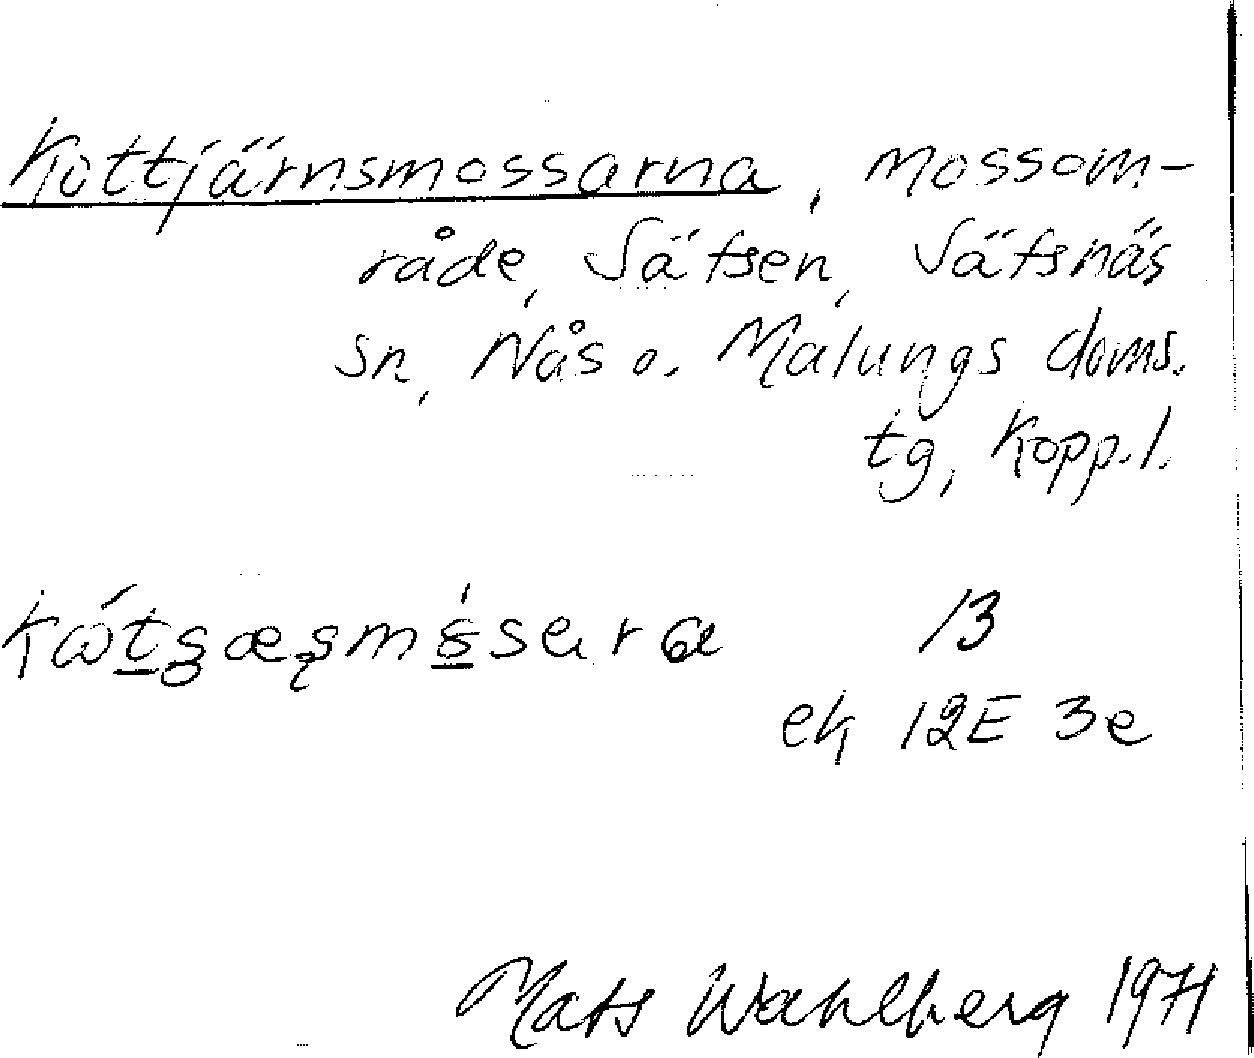 Kottjärnsmossarna, mossom-
råde, Sätsen, Sätsnäs
sn, Nås o. Malungs doms.
tg, Kopp.l.
13
ek 12E 3e
Mats Wahlberg 1971